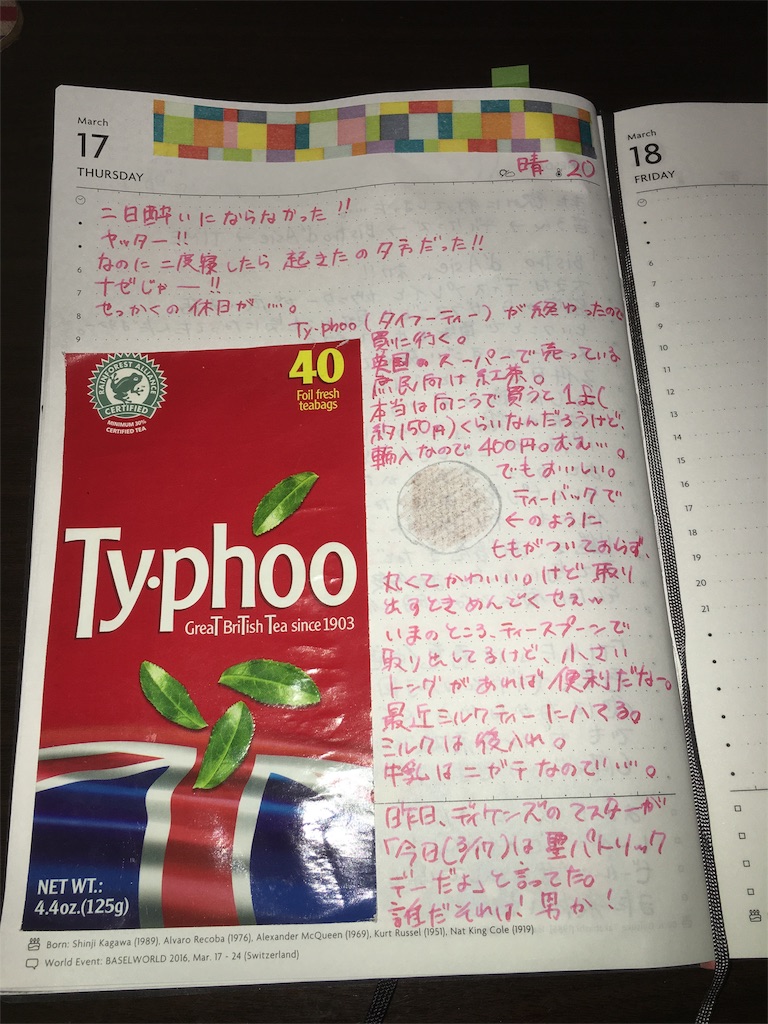 March
17
THURSDAY
晴 20
二日酔いにならなかった!!
ヤッター!!
なのに二度寝したら起きたの夕方だった!!
ナゼじゃー!!
せっかくの休日が…。
6
7
8
9
Ty-phoo(タイフーティー)が終わったので
買に行く。
英国のスーパーで売っている
庶民向け紅茶。
本当は向こうで買うと1£(
約150円)くらいなんだろうけど、
輸入なので400円。むむ…。
でもおいしい。
ティーバックで
←のように
ヒモがついておらず、
丸くてかわいい。けど取り
出すときめんどくせぇw
いまのところ、ティースプーンで
取り出してるけど、小さい
トングがあれば便利だなー。
最近ミルクティーにハマてる。
ミルクは後入れ。
牛乳はニガテなので…。
昨日、ディケンズのマスターが
「今日(3/17)は聖パトリック
デーだよ」と言ってた。
誰だそれは!男か!
RAINFOREST ALLIANCE
CERTIFIED
MINIMUM 30%
CERTIFIED TEA
40
Foil fresh
teabags
Ty·phoo
GreaT BriTish Tea since 1903
NET WT.:
4.4oz.(125g)
Born: Shinji Kagawa (1989), Alvaro Recoba (1976), Alexander McQueen (1969), Kurt Russel (1951), Nat King Cole (1919)
World Event: BASELWORLD 2016, Mar. 17 - 24 (Switzerland)
March
18
FRIDAY
6
7
8
9
10
11
12
13
14
15
16
17
18
19
20
21